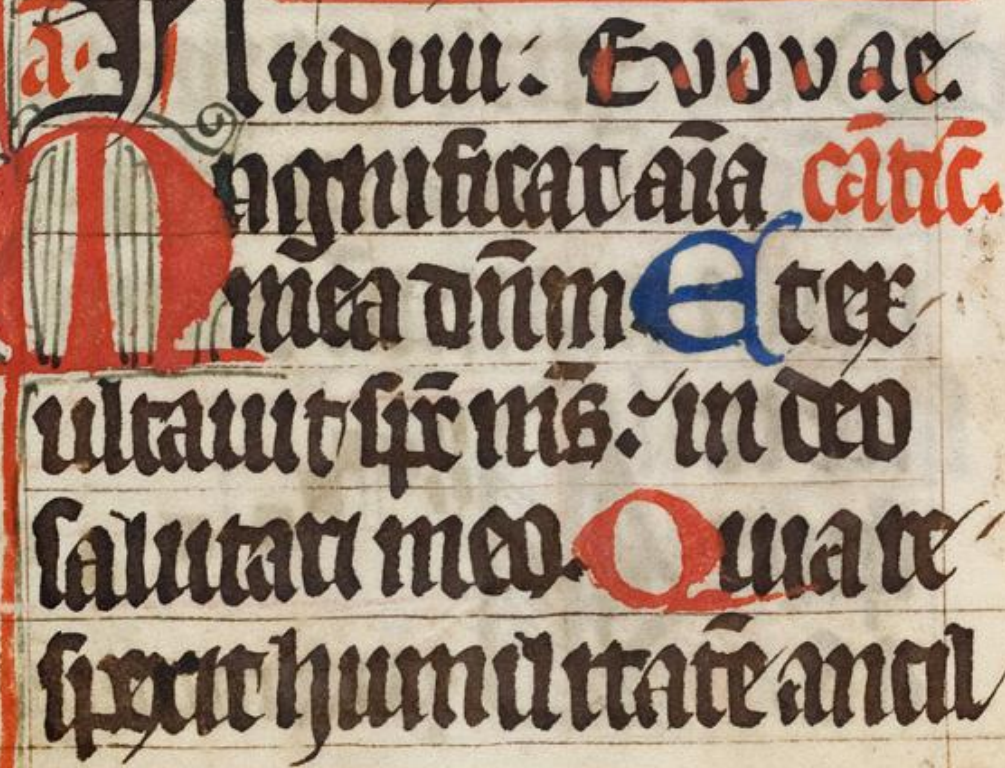 a. Audiui: Evovae.
Magnificat aīa cātic.
mea dn̄m Et ex
ultauit spr̄ mēs: in deo
salutari meo. Quia re
spexit humilitatē ancil